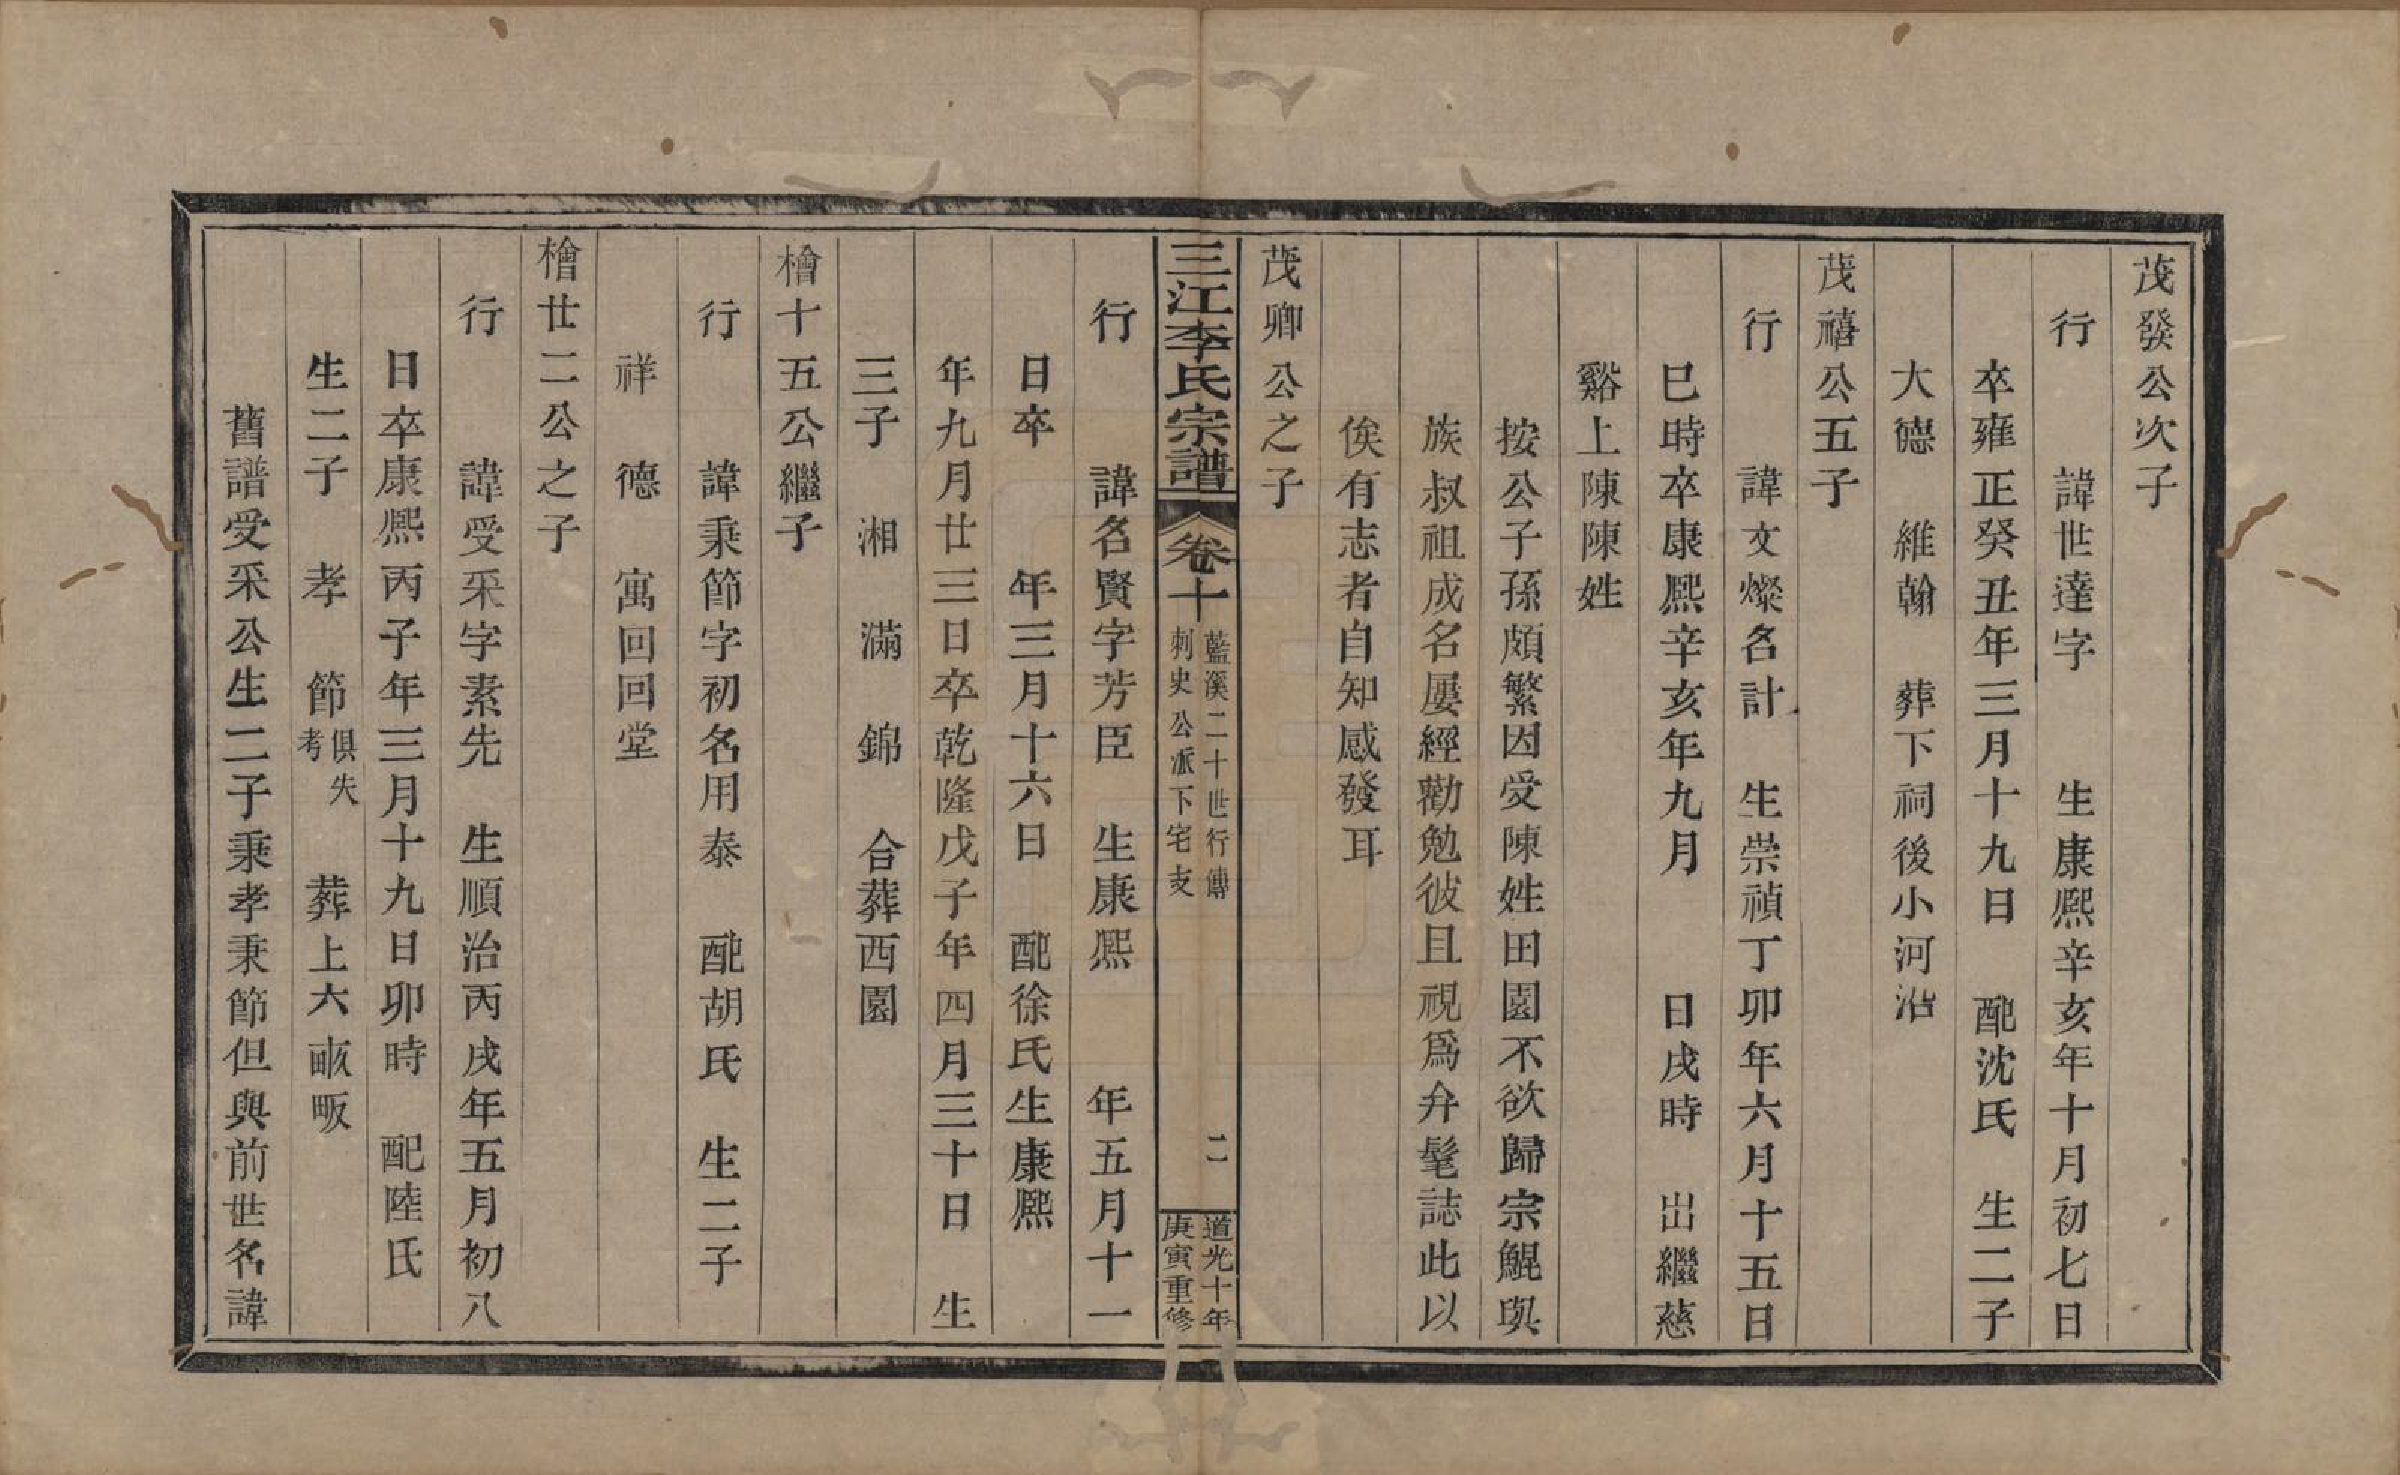 茂發公次子
行　諱世達字　生康熙辛亥年十月初七日
卒雍正癸丑年三月十九日　配沈氏　生二子
大德　維翰　葬下祠後小河沿
茂禧公五子
行　諱文燦名計　生崇禎丁卯年六月十五日
巳時卒康熙辛亥年九月　日戌時　出繼慈
谿上陳陳姓
按公子孫頗繁因受陳姓田園不欲歸宗鯤與
族叔祖成名屢經勸勉彼且視爲弁髦誌此以
俟有志者自知感發耳
茂卿公之子
三江李氏宗譜　卷十　藍溪二十世行傳　刺史公派下宅支　二　道光十年庚寅重修
行　諱名賢字芳臣　生康熙　年五月十一
日卒　年三月十六日　配徐氏生康熙
年九月廿三日卒乾隆戊子年四月三十日　生
三子　湘　滿　錦　合葬西園
檜十五公繼子
行　諱秉節字初名用泰　配胡氏　生二子
祥　德　寓回回堂
檜廿二公之子
行　諱受采字素先　生順治丙戌年五月初八
日卒康熙丙子年三月十九日卯時　配陸氏
生二子　孝　節俱失考　葬上六畝畈
舊譜受采公生二子秉孝秉節但與前世名諱